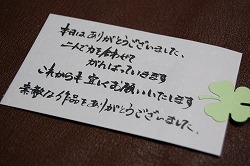 本日はありがとうございました、
二人で力を合わせて
がんばっていきます
これからも宜しくお願いいたします
素敵な作品をありがとうございました。